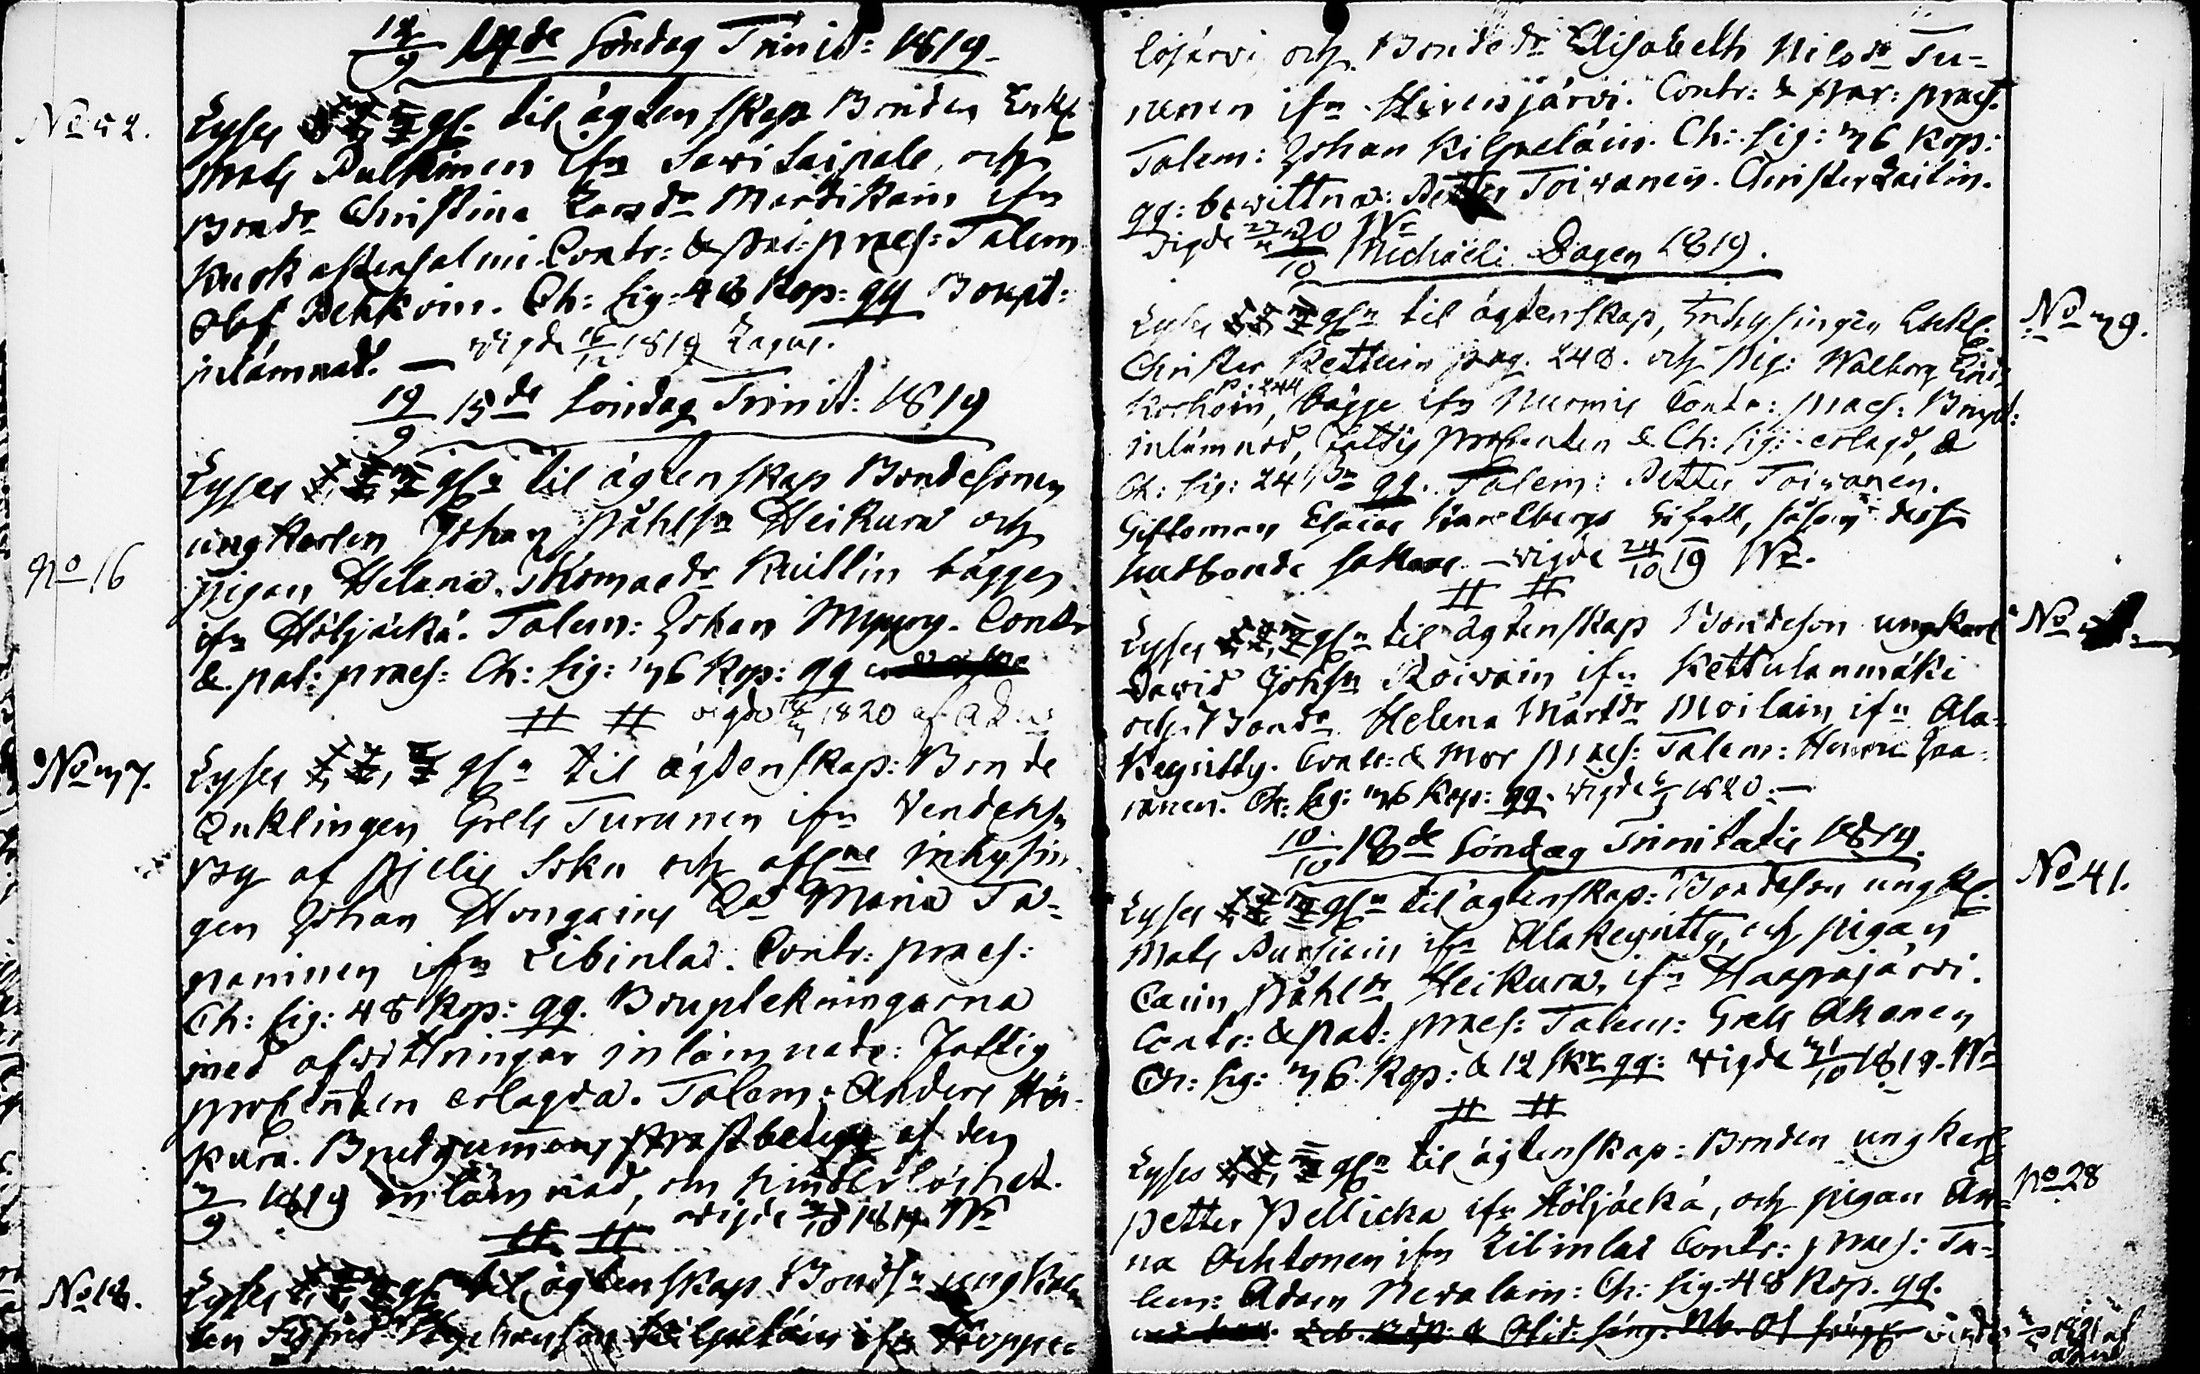 12/9 14de Söndag Trinit: 1819.
No 52.
Lyses I, II, III gn til ägtenskap Bonden Enkl.
Mats Pulkinen ifn Savilaipale, och
Bondr Christina Larsdr Mardikain ifn
Puokasensalmi. Contr: & pat: præs: Talem
Olof Pekkoin. Ch: sig: 48 Kop: qq Boupt:
inlämnad. — vigde 16/12 1819 Lagus.
19/9 15de Söndag Trinit: 1819
No 16
Lyses I, II, III gn til ägtenskap Bondesonen
ungkarlen Johan Påhlsn Heikura och
pigan Helena Thomaedr Kuillin bägge
ifn Höljäckä. Talem: Johan Mynny. Contr
& pat: præs: Ch: sig: 36 Kop: qq
vigde 1820 af
No 37.
Lyses I, II, III gn til ägtenskap: Bonde
Enklingen Grels Turunen ifn Vendehn
By af Pjelis Sokn och afl. inhysin
gen Johan Hongains Ea Maria Ta-
paninen ifn Libinlax. Contr: præs:
Ch: sig: 48 Kop: qq. Bouptekningarna
med afwittringar inlämnade: Fattig
procenten erlagda. Talem: Anders Här-
kurä. Brudgummens Prestbetyg af den
3/9 1819 inlämnad, om hinderlöshet.
vigde 3/10 1819 Wn
No 18.
Lyses I, II, III gn til ägtenskap Bondsn ungkar
len Kilpeläin ifn Koppe-
lojärvi och Bondedr Elisabeth Nilsdr Tu-
runen ifn Hirvisjärvi. Contr: & par: præs.
Talem: Johan Kilpeläin. Ch: sig: 36 Kop:
qq: bewittna: Petter Toiwanen. Christer Laitin.
vigde 27/12 20 Wn
3/10 Michäeli Dagen 1819.
No 39.
Lyses I, II, III gn til ägtenskap, Inhysingen Enkl.
Christer Kettuin pag. 248. och Pig: Walborg Eric
Korhoin, p. 244 bägge ifn Nurmis Contr: præs: Boupt:
inlämnad, Fattig procenten & Ch: sig: erlagd, &
Ch: sig: 24 qq. Talem: Petter Toivanen.
Giftoman Elaias bifall, såsom dess
husbonde saknas. — vigde 24/10 19 Wn.
No
Lyses I, II, III gn til ägtenskap Bondeson ungkarl
David Johsn Roivain ifn Kettulanmäki
och Bondr Helena Mårtdr Moilain ifn Ala-
Keyritty. Contr: & Mor præs: Talem: Henric Zaa-
ranen. Ch: sig: 36 Kop: qq. vigde 1820. —
10/10 18de Söndag Trinitatis 1819.
No 41.
Lyses I, II, III gn til ägtenskap: Bondeson ungkl.
Mats Pursiain ifn Alakeyritty, och pigan
Carin Påhldr Heikura, ifn Haapajärvi.
Contr: & Pat: præs: Talem: Grels Akonen
Ch: sig: 36 Kop: & 12 skr qq: vigde 31/10 1819. Wn
No 28
Lyses I, II, III gn til ägtenskap: Bonden ungkarl
Petter Pellicka ifn Höljäckä, och pigan An-
na Ochtonen ifn Libinlax Contr: præs: Ta-
lem: Adam Nevalain: Ch: sig: 48 Kop. qq.
1821 af